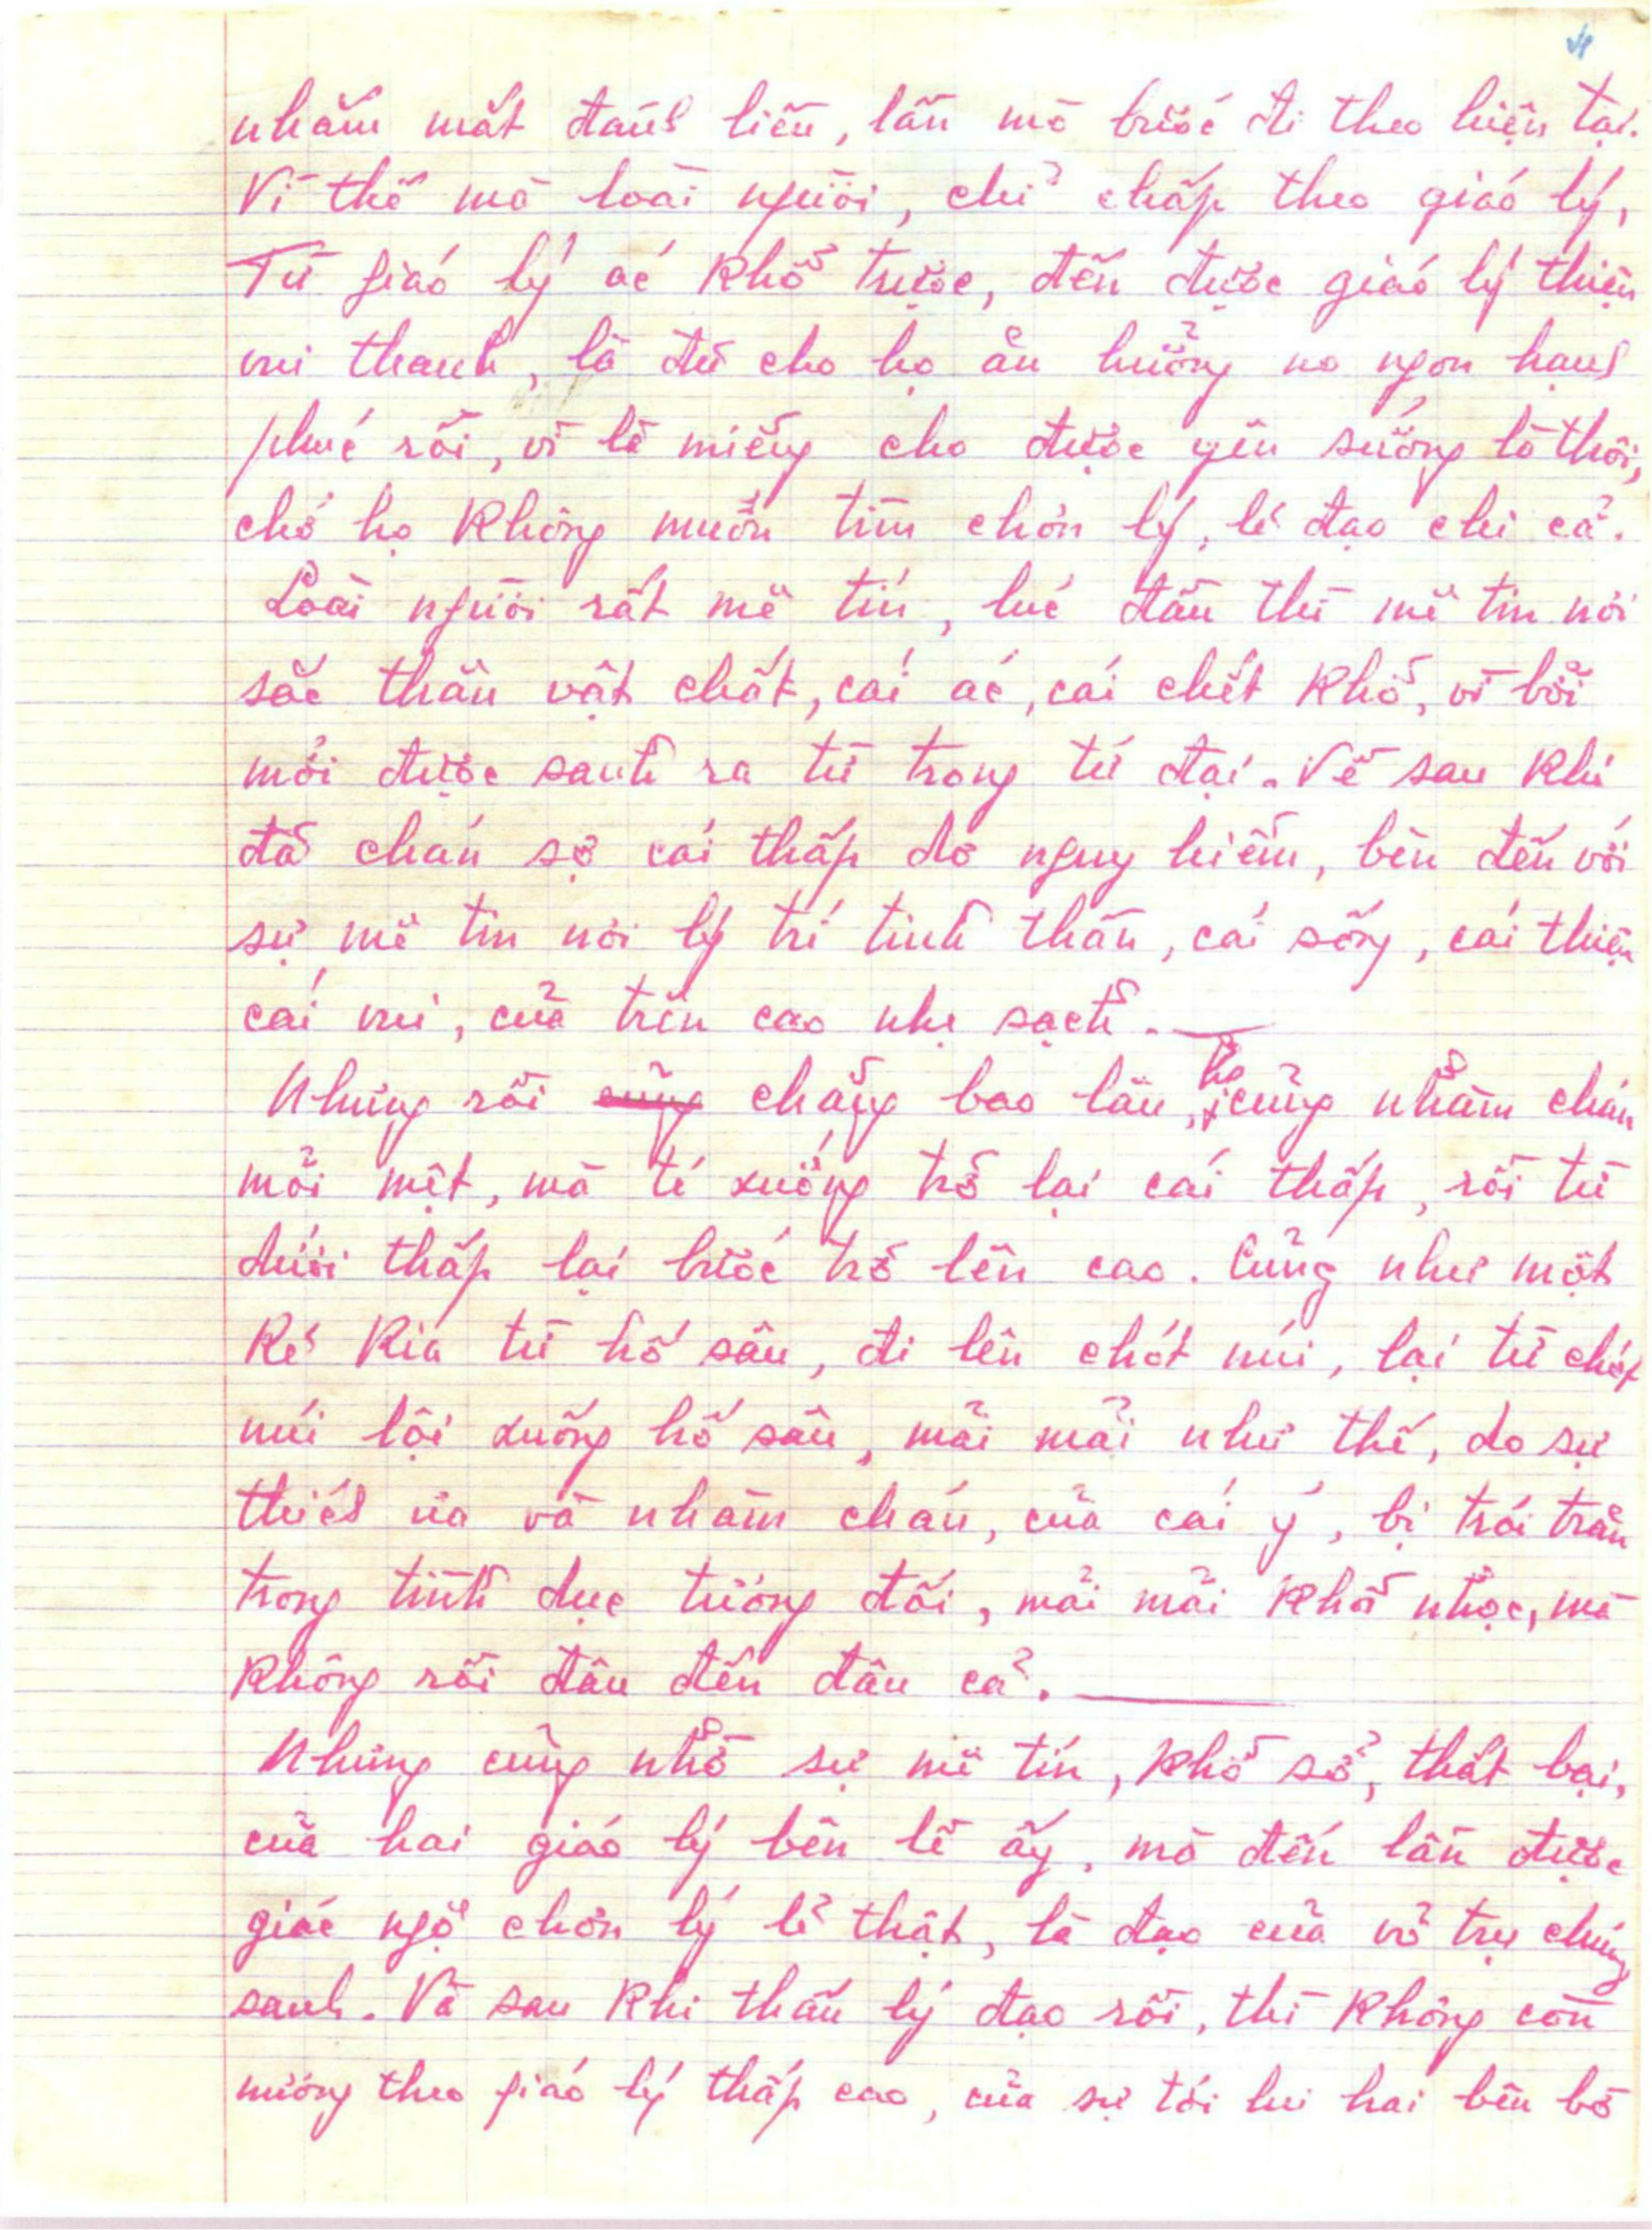 nhắm mắt đánh liều, lần mò bước đi theo hiện tại.
Vì thế mà loài người, chỉ chấp theo giáo lý,
Từ giáo lý ác khổ trược, đến được giáo lý thiện
vui thanh, là đủ cho họ ăn hưởng no ngon hạnh
phúc rồi, vì lẽ miễng cho được yên sướng là thôi,
chớ họ không muốn tìm chơn lý, lẽ đạo chi cả.
Loài người rất mê tín, lúc đầu thì mê tín nơi
sắc thân vật chất, cái ác, cái chết khổ, vì bởi
mới được sanh ra từ trong tứ đại. Về sau khi
đã chán sợ cái thấp dơ nguy hiểm, bèn đến với
sự mê tín nơi lý trí tinh thần, cái sống, cái thiện
cái vui, của trên cao nhẹ sạch.
Nhưng rồi cũng chẳng bao lâu, họ cũng nhàm chán
mỏi mệt, mà té xuống trở lại cái thấp, rồi từ
dưới thấp lại bước trở lên cao. Cũng như một
kẻ kia từ hố sâu, đi lên chót núi, lại từ chót
núi lội xuống hố sâu, mãi mãi như thế, do sự
thích ưa và nhàm chán, của cái ý, bị trói trăn
trong tình dục tương đối, mãi mãi khổ nhọc, mà
không rồi đâu đến đâu cả.
Nhưng cũng nhờ sự mê tín, khổ sở, thất bại,
của hai giáo lý bên lề ấy, mà đến lần được
giác ngộ chơn lý lẽ thật, là đạo của vũ trụ chúng
sanh. Và sau khi thấu lý đạo rồi, thì không còn
nương theo giáo lý thấp cao, của sự tới lui hai bên bờ